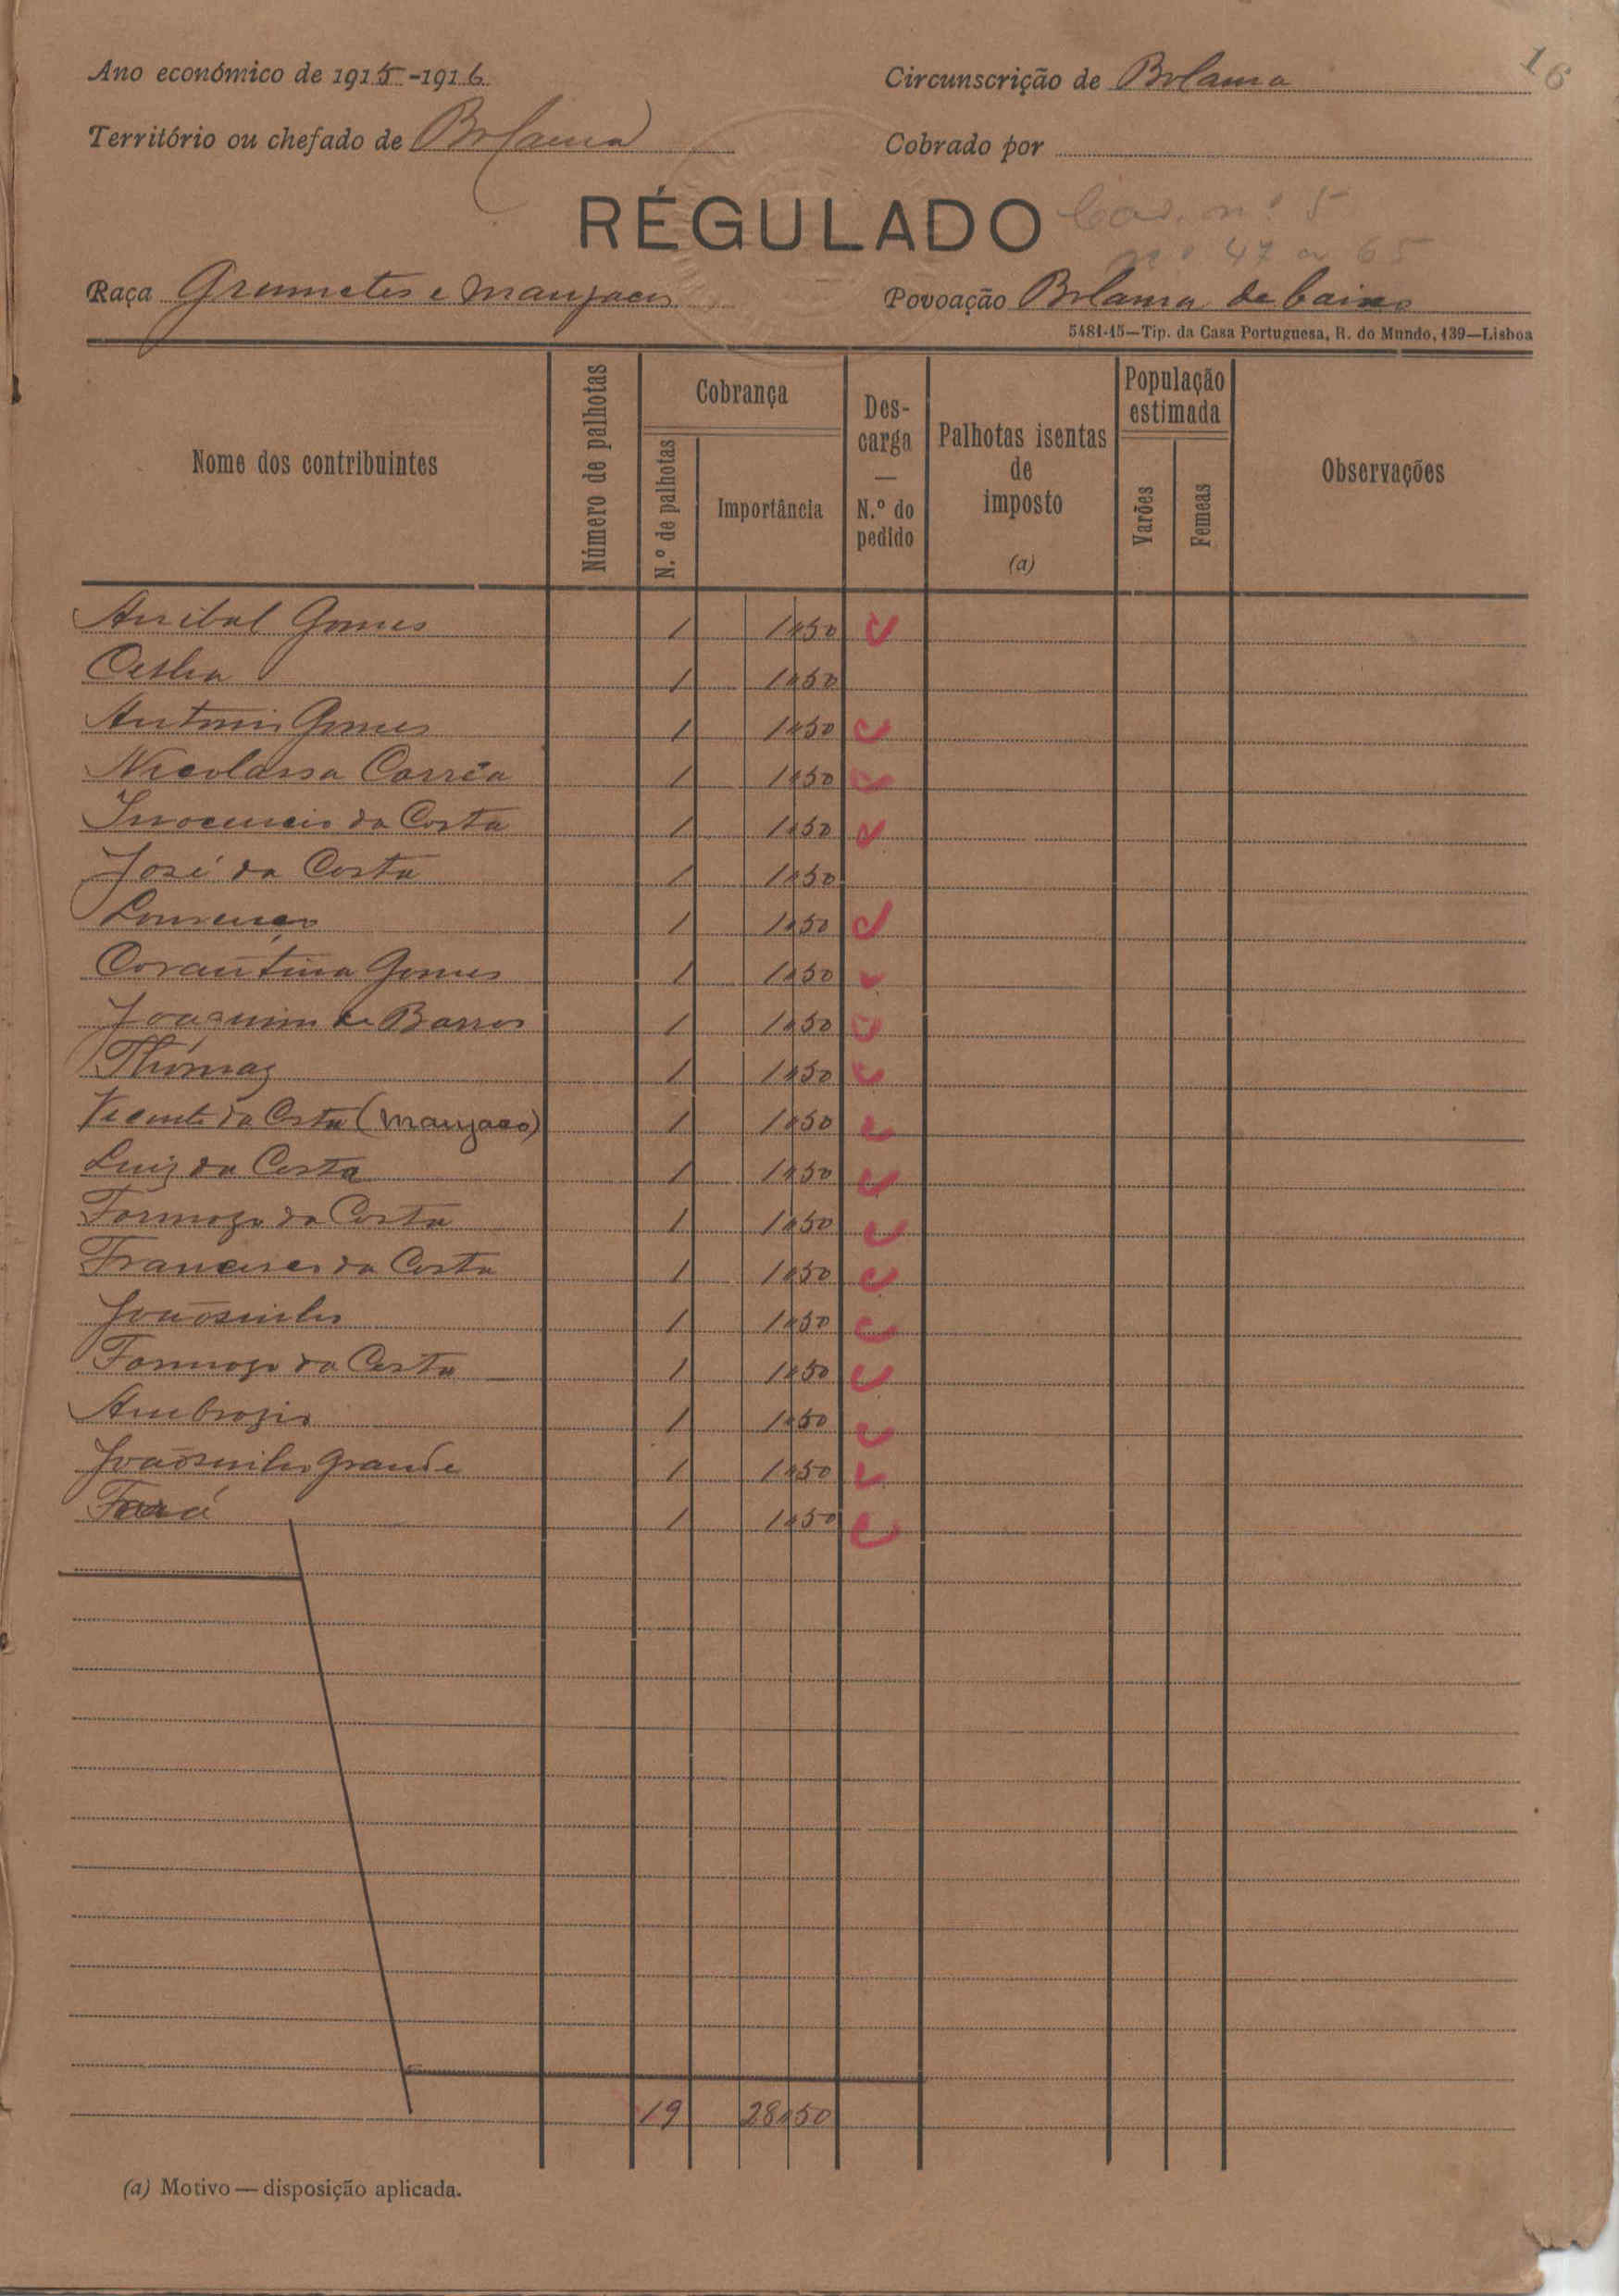 16
Ano económico de 1915-1916
Circunscrição de Bolama
Território ou chefado de Bolama
Cobrado por
RÉGULADO
Cad. nº 5
nº 47 a 65
Raça Grumetes e manjacos
Povoação Bolama de baixo
5481-15—Tip. da Casa Portuguesa, R. do Mundo, 139—Lisboa
Nome dos contribuintes
Número de palhotas
Cobrança
N.º de palhotas
Importância
Descarga — N.º do pedido
Palhotas isentas de imposto (a)
População estimada
Varões
Femeas
Observações
Anibal Gomes 1 1$50
1 1$50
Antonio Gomes 1 1$50
Nicolassa Corrêa 1 1$50
Inocencio da Costa 1 1$50
José da Costa 1 1$50
Lourenço 1 1$50
Corantina Gomes 1 1$50
Joaquim de Barros 1 1$50
Thómaz 1 1$50
Vicente da Costa (manjaco) 1 1$50
Luiz da Costa 1 1$50
Formozo da Costa 1 1$50
Francisco da Costa 1 1$50
Joãosinho 1 1$50
Formozo da Costa 1 1$50
Ambrozio 1 1$50
Joãosinho Grande 1 1$50
1 1$50
19 28$50
(a) Motivo — disposição aplicada.